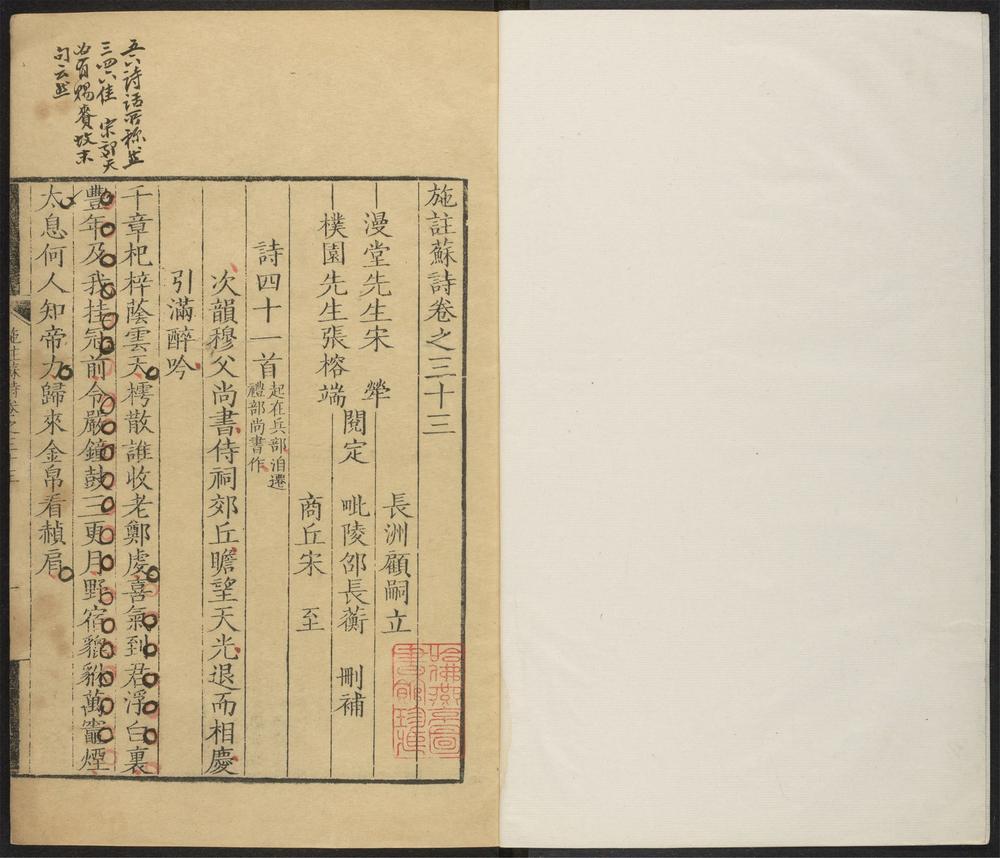 五六詩話所稱然
三四六佳 宋郊天
必有賜賚故末
句云然
施註蘇詩卷之三十三
漫堂先生宋 犖
樸園先生張榕端
閱定
長洲顧嗣立
毗陵邵長蘅
商丘宋 至
刪補
詩四十一首 起在兵部洎遷禮部尚書作
次韻穆父尚書侍祠郊丘瞻望天光退而相慶
引滿醉吟
千章杞梓蔭雲天樗散誰收老鄭虔喜氣到君浮白裏
豐年及我挂冠前令嚴鐘鼓三更月野宿貔貅萬竈煙
太息何人知帝力歸來金帛看赬肩
施註蘇詩卷之三十三
一
哈佛燕京圖
書館珍藏